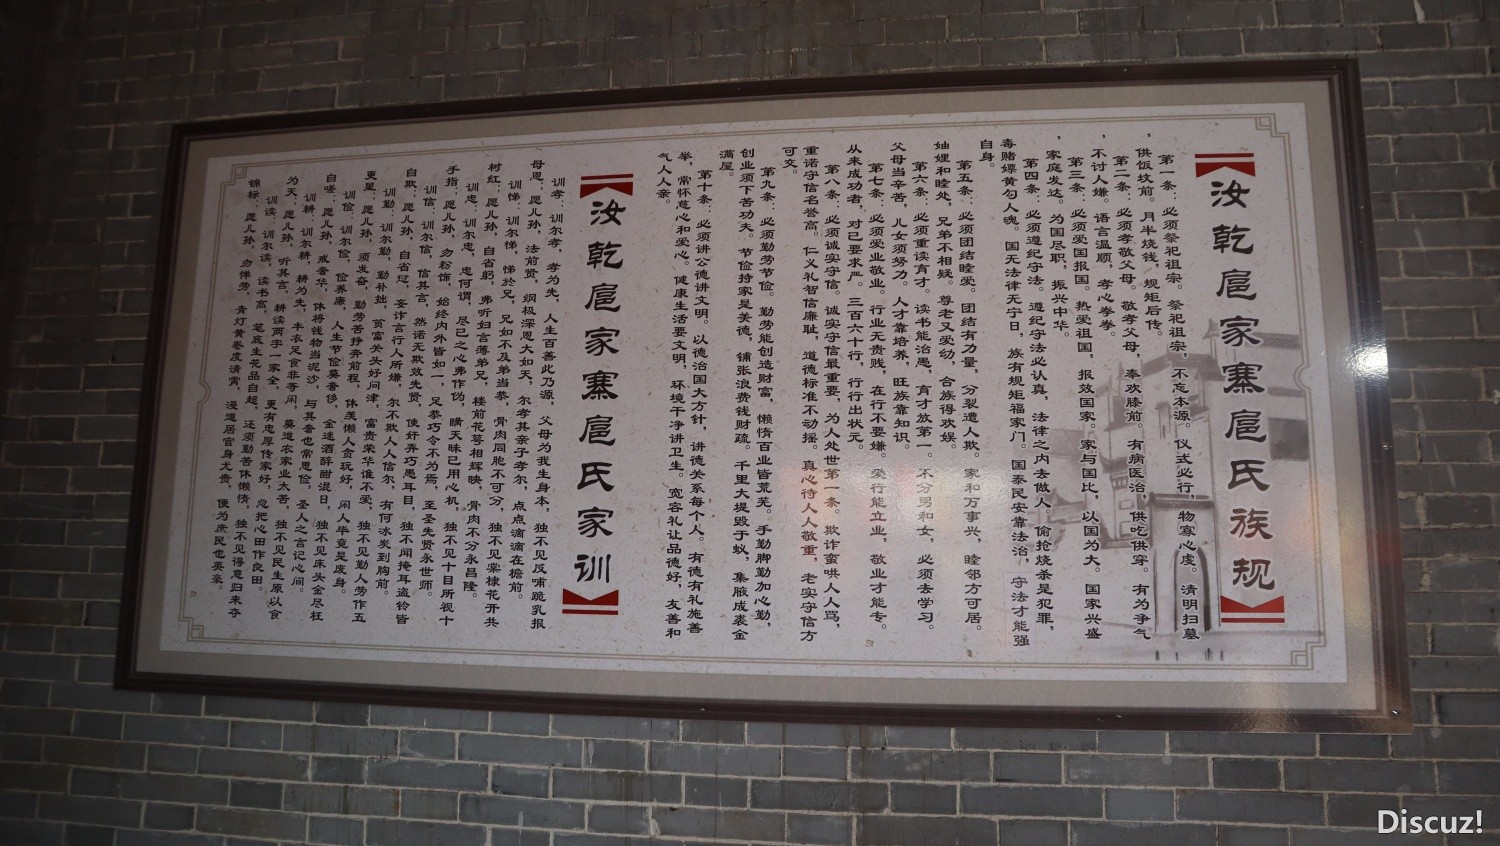 汝乾扈家寨扈氏族规
第一条：必须祭祀祖宗。祭祀祖宗，不忘本源。仪式必行，物寡心虔。清明扫墓
，供饭坟前。月半烧钱，规矩后传。
第二条：必须孝敬父母。敬孝父母，奉欢膝前。有病医治，供吃供穿。有为争气
，不讨人嫌。语言温顺，孝心拳拳。
第三条：必须爱国报国。热爱祖国，报效国家。家与国比，以国为大。国家兴盛
，家庭发达。为国尽职，振兴中华。
第四条：必须遵纪守法。遵纪守法必认真，法律之内去做人。偷抢烧杀是犯罪，
毒赌嫖黄勾人魂。国无法律无宁日，族有规矩福家门。国泰民安靠法治，守法才能强
自身。
第五条：必须团结睦爱。团结有力量，分裂遭人欺。家和万事兴，睦邻方可居。
妯娌和睦处，兄弟不相疑。尊老又爱幼，合族得欢娱。
第六条：必须重读育才。读书能治愚，育才放第一。不分男和女，必须去学习。
父母当辛苦，儿女须努力。人才靠培养，旺族靠知识。
第七条：必须爱业敬业。行业无贵贱，在行不要嫌。爱行能立业，敬业才能专。
从来成功者，对己要求严。三百六十行，行行出状元。
第八条：必须诚实守信。诚实守信最重要，为人处世第一条。欺诈蛮哄人人骂，
重诺守信名誉高。仁义礼智信廉耻，道德标准不动摇。真心待人人敬重，老实守信方
可交。
第九条：必须勤劳节俭。勤劳能创造财富，懒惰百业皆荒芜。手勤脚勤加心勤，
创业须下苦功夫。节俭持家是美德，铺张浪费钱财疏。千里大堤毁于蚁，集腋成裘金
满屋。
第十条：必须讲公德讲文明。以德治国大方针，讲德关系每个人。有德有礼施善
举，常怀慈心和爱心。健康生活要文明，环境干净讲卫生。宽容礼让品德好，友善和
气人人亲。
汝乾扈家寨扈氏家训
训孝：训尔孝，孝为先，人生百善此乃源，父母为我生身本，独不见反哺跪乳报
母恩：愿儿孙，法前贤，纲极深恩大如天，尔孝其亲子孝尔，点点滴滴在檐前。
训悌，训尔悌，悌於兄，兄如不及弟当恭，骨肉同胞不可分，独不见棠棣花开共
树红：愿儿孙，自省躬，弗听妇言薄弟兄，楼前花萼相辉映，骨肉不分永昌隆。
训忠，训尔忠，忠何谓，尽己之心弗作伪，瞒天昧己用心机，独不见十目所视十
手指：愿儿孙，勿粉饰，始终内外皆如一，足恭巧令不为焉，至圣先贤永世师。
训信，训尔信，信其言，然诺无欺效先贤，使好弄巧惑耳目，独不闻掩耳盗铃皆
自欺：愿儿孙，自省愆，妄诈言行人所嫌，尔不欺人人信尔，有何冰炭到胸前。
训勤，训尔勤，勤补拙，贫富关头好问津，富贵荣华谁不爱，独不见勤人劳作五
更星，愿儿孙，须发奋，勤劳苦挣奔前程，休羡懒人贪玩好，闲人毕竟是废身。
训俭，训尔俭，俭养廉，人生节俭莫奢侈，金迷酒醉酣混日，独不见床头金尽枉
自嗟：愿儿孙，戒奢华，休将钱物当泥沙，与其奢也常思俭，圣人之言记心间。
训耕，训尔耕，耕为先，丰衣足食非等闲，莫道农家业太苦，独不见民生原以食
为天，愿儿孙，听其言，耕读两字一家全，更有忠厚传家好，总把心田作良田。
训读，训尔读，读书高，笔底生花品自超，还须勤苦休懒惰，独不见得意归来夺
锦标，愿儿孙，勿惮劳，青灯黄卷度清宵，漫道居官身尤贵，便为庶民也英豪。
Discuz!